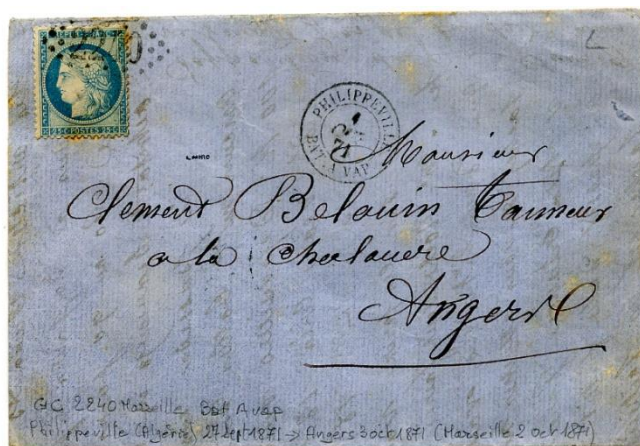 REPUB FRANC
25C POSTES 25C
PHILIPPEVILLE
BAT. A VAP
71
Monsieur
Clement Belouin Tanneur
a la chalouere
Angers
GC 2240 Marseille Bat A vap
Philippeville (Algérie) 27 sept 1871 → Angers 3 oct 1871 (Marseille 2 oct 1871)